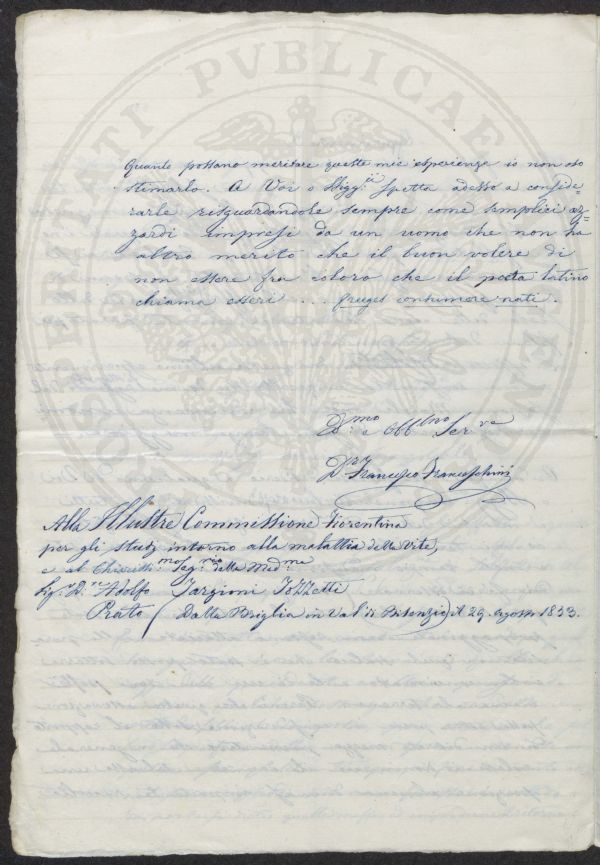 PROSPERITATI PVBLICAE AVGENDAE
Quanto possano meritare queste mie esperienze io non oso
stimarlo. A Voi o Sigg.ri spetta adesso a conside=
rarle risguardandole sempre come semplici az=
zardi impresi da un uomo che non ha
altro merito che il buon volere di
non essere fra coloro che il poeta latino
chiama esseri ... fruges consumere nati.
D.mo e Obb.mo Ser.ve
D.r Francesco Franceschini
Alla Illustre Commissione Fiorentina
per gli studj intorno alla malattia delle Vite,
e al Chiariss.mo Seg.rio della Med.ma
Sig.r D.re Adolfo Targioni Tozzetti
Prato (Dalla Briglia in Val di Bisenzio) il 29. Agosto 1853.